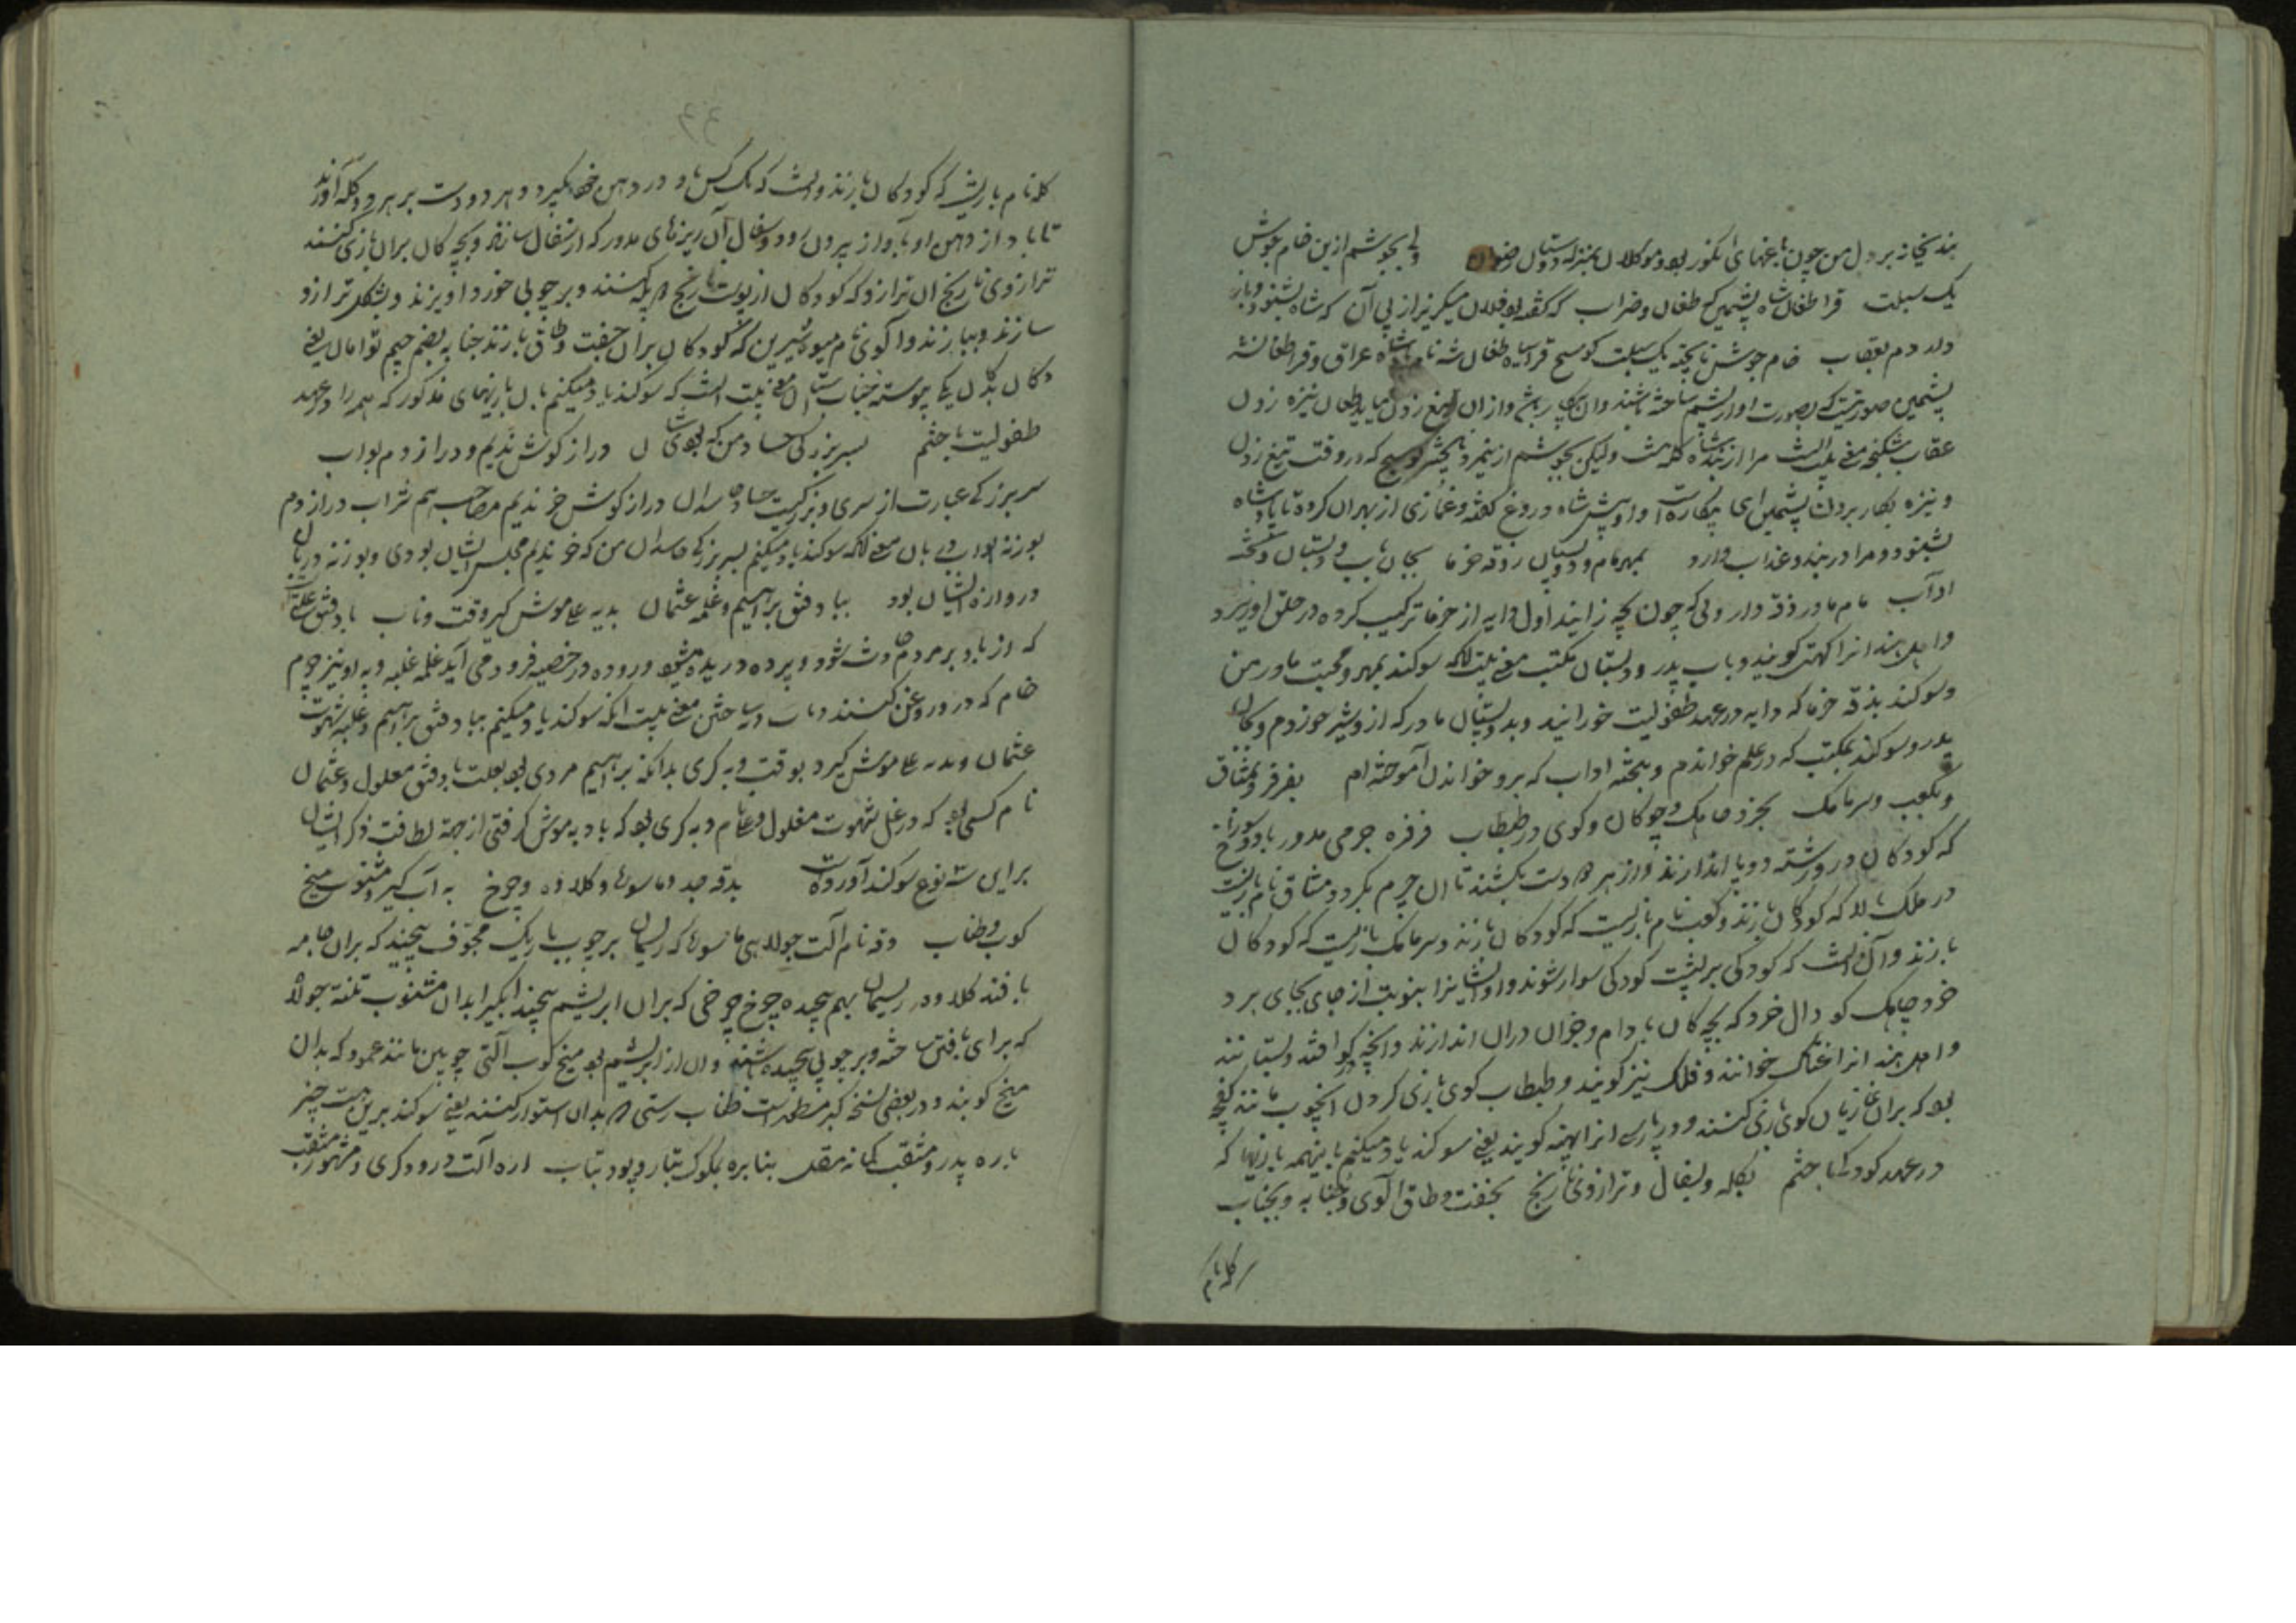 بندیخانه بر دل من چون باغهای انگور بود و موکلان بمنزله دوستان رضوان ولی بجوشم ازین خام جوش
یک سبلت قراطغان شاه پشمین که طغان و ضراب که گفته بود فلان میگریزد از پی آن که شاه بشنود و باز
دلد دم بعقاب خام جوش ناپخته یک سبلت کوسج
پشمین صورتیست که بصورت او از پشم ساخته باشند و آن بیکار باشد و از آن تیغ زدن نیاید طعان نیزه زدن
عقاب شکنجه معنی بیت آنست مرا از بند شاه گله نیست ولیکن بجوشم ازین مرد ناپخته کوسج که در وقت تیغ زدن
و نیزه بکار بردن پشمین ای بیکارست و او پیش شاه دروغ گفته و غمازی از بهر آن کرده تا پادشاه
بشنود و مرا در بند و عذاب دارد بمهر مام و دو پستان و زقه خرما بجان باب و دبستان و تخته
آداب مام مادر زقه دارویی که چون بچه زایند اول دایه از خرما ترکیب کرده در حلق او ریزد
و اهل هند آنرا کهتی گویند و باب پدر و دبستان مکتب معنی بیت آنکه سوگند بمهر و محبت مادر من
و سوگند بزقه خرما که دایه در عهد طفولیت خورانید و بدو پستان مادر که ازو شیر خوردم و بجان
پدر و سوگند بمکتب که در علم خواندم و بتخته آداب که برو خواندن آموخته‌ام بفرفره و بمشاق
و بکعب و سرمامک بخرد چاهک و چوگان و گوی در طبطاب فرفره چرمی مدور با دو سوراخ
که کودکان در رشته دوپا اندازند و از هر دو دست بکشند تا آن چرم بگردد و مشاق نام بازیست
در ملک بالا که کودکان بازند و کعب نام بازیست که کودکان بازند و سرمامک بازیست که کودکان
بازند و آن آنست که کودکی بر پشت کودکی سوار شوند و او ایشانرا بنوبت از جای بجای برد
خرد چاهک گودال خرد که بچه‌گان بادام و جوز آن در آن اندازند و آنچه در گو افتد بستانند
و اهل هند آنرا غچاک خوانند و فلک نیز گویند و طبطاب گوی بازی کردن آنچوب مانند کفچه
بود که بر آن غازیان گوی بازی کنند و در پارسی آنرا پهنه گویند یعنی سوگند یاد میکنم باینهمه بازیها که
در عهد کودکی باختم بکله و بسفال و ترازوی نارنج بجفت و طاق الوی و بجنابه و بجناب
کله نام
کله نام بازیست که کودکان بازند و آنست که یک کس باد در دهن خود گیرد و هر دو دست بر هر دو کله آورند
تا باد از دهن او بآواز بیرون رود و سفال آن ریزهای مدور که از سفال سازند و بچه‌گان بر آن بازی کنند
ترازوی نارنج آن ترازو که کودکان از پوست نارنج دو پله کنند و بر چوبی خورد آویزند و بشکل ترازو
سازند و ببازند و آلوی نام میوه شیرین که کودکان بر آن جفت و طاق بازند جنابه بضم جیم توأمان یعنی
دگان بدان یکجا پیوسته جناب معنی بیت آنست که سوگند یاد میکنم بآن بازیهای مذکور که همه را در عهد
طفولیت باختم بسر بزرگی حساد من که بودشان دراز گوش ندیم و دراز دم بواب
سر بزرگی عبارت از سری و بزرگیست حساد حاسدان دراز گوش خر ندیم مصاحب هم شراب دراز دم
بوزنه بواب دربان معنی آنکه سوگند یاد میکنم بسر بزرگی حاسدان من که خر ندیم مجلس ایشان بودی و بوزنه دربان
دروازه ایشان بود بباد فتق براهیم و غلمه عثمان بدبه علی موش گیر وقت دباب باد فتق علتی
که از باد بر مردم حادث شود و پرده دریده میشود و روده در خصیه فرود می آید غلمه غلبه دبه آوند چرم
خام که درو روغن کنند دباب دبه ساختن معنی بیت آنکه سوگند یاد میکنم بباد فتق براهیم و غلبه شهوت
عثمان و بدبه علی موش گیر بوقت دبه گری بدانکه براهیم مردی بود بعلت باد فتق معلول و عثمان
نام کسی بود که در غل شهوت مغلول و علی نام دبه گری بود که باد به موش گرفتی از جهة لطافت ذکر ایشان
برای سه نوع سوگند آورده است بدفه جد و ماسوره و کلاوه و چرخ به آبگیر و مشتوب میخ
کوب و طناب دفه نام آلت جولاهی ماسوره که ریسمان بر چوب باریک مجوف پیچند که بر آن جامه
بافند کلاوه ریسمان بهم پیچیده چرخ چرخی که بر آن ابریشم پیچند آبگیر ابدان مشتوب تلنه جولاه
که برای بافتن ساخته و بر چوبی پیچیده باشند و آن از ابریشم بود میخ کوب آلتی چوبین مانند عمود که بدان
میخ کوبند و در بعضی نسخ طناب رسنی که بدان استوار کنند یعنی سوگند برین هست چیز
باره پدر و مثقب کمانه مقل بنایره بمکوک بتار و پود بتاب اره آلت درودگری و مشهور مثقب